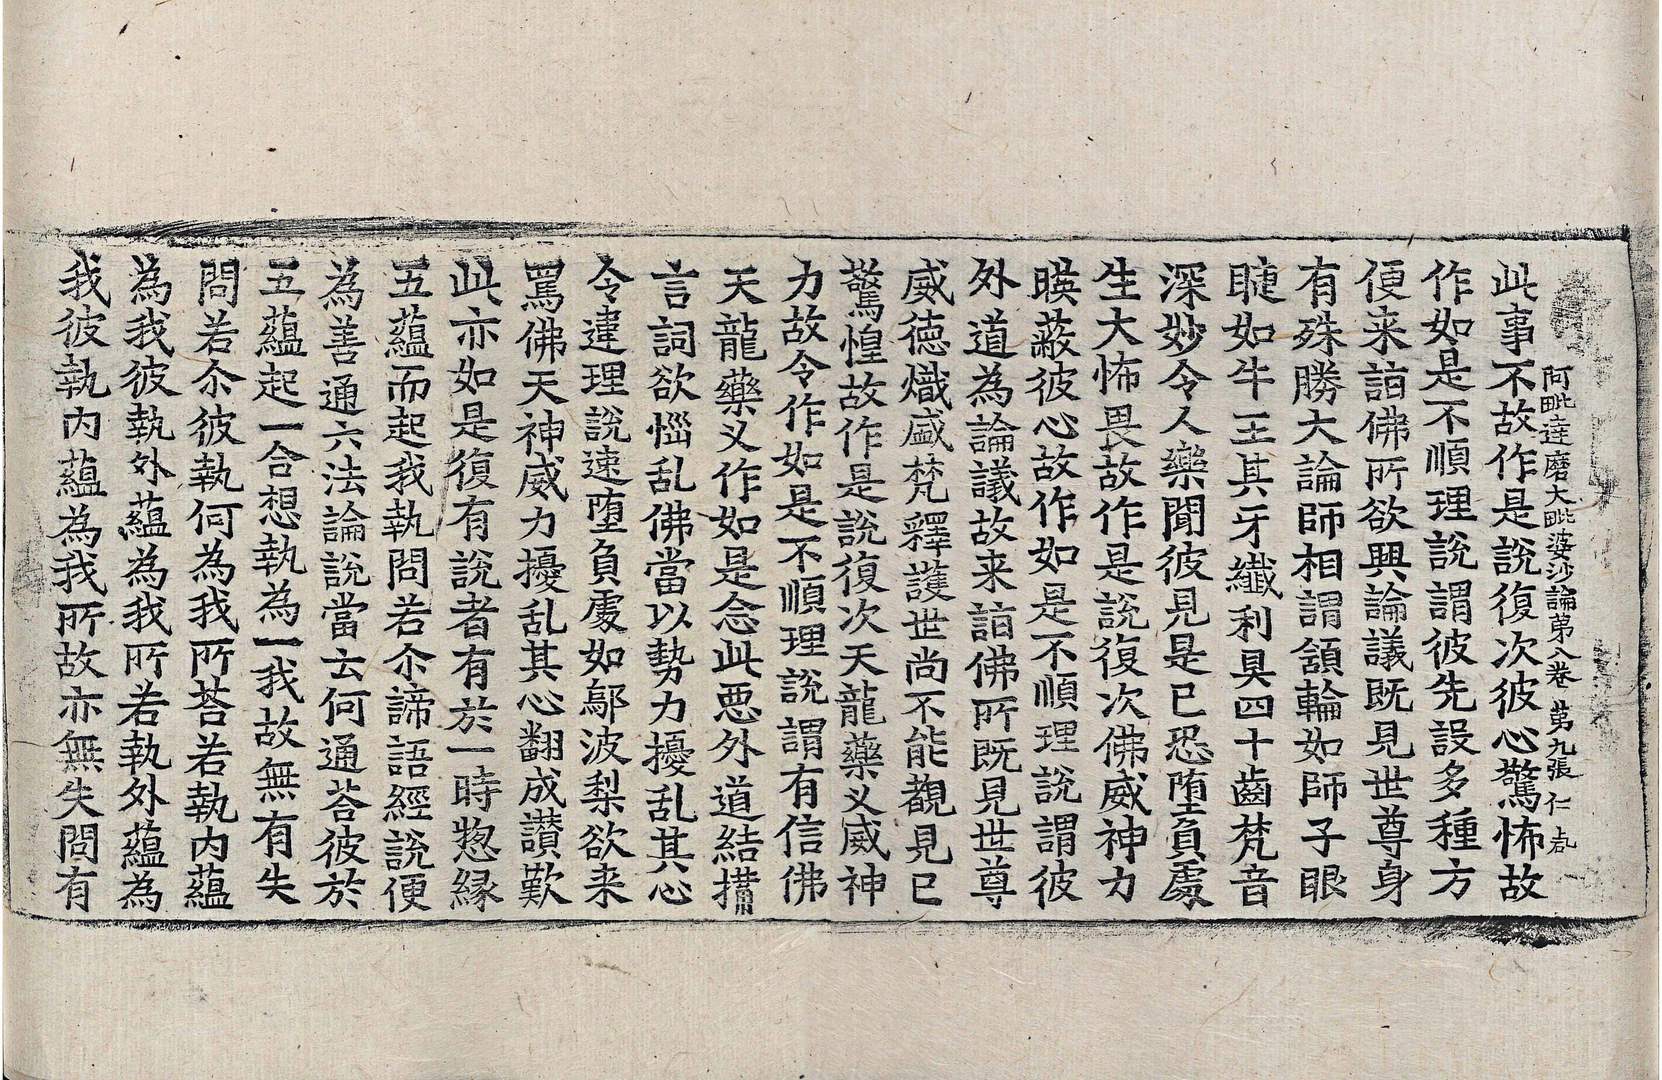 阿毗達磨大毗婆沙論第八卷 第九張 仁
此事不故作是說復次彼心驚怖故
作如是不順理說謂彼先設多種方
便来詣佛所欲興論議既見世尊身
有殊勝大論師相謂頷輪如師子眼
睫如牛王其牙纖利具四十齒梵音
深妙令人樂聞彼見是已恐墮負處
生大怖畏故作是說復次佛威神力
暎蔽彼心故作如是不順理說謂彼
外道為論議故来詣佛所既見世尊
威德熾盛梵釋護世尚不能觀見已
驚惶故作是說復次天龍藥叉威神
力故令作如是不順理說謂有信佛
天龍藥叉作如是念此惡外道結搆
言詞欲惱乱佛當以勢力擾乱其心
令違理說速墮負處如鄔波梨欲来
罵佛天神威力擾乱其心翻成讚歎
此亦如是復有說者有於一時惣緣
五蘊而起我執問若尒諦語經說便
為善通六法論說當云何通荅彼於
五蘊起一合想執為一我故無有失
問若尒彼執何為我所荅若執內蘊
為我彼執外蘊為我所若執外蘊為
我彼執內蘊為我所故亦無失問有